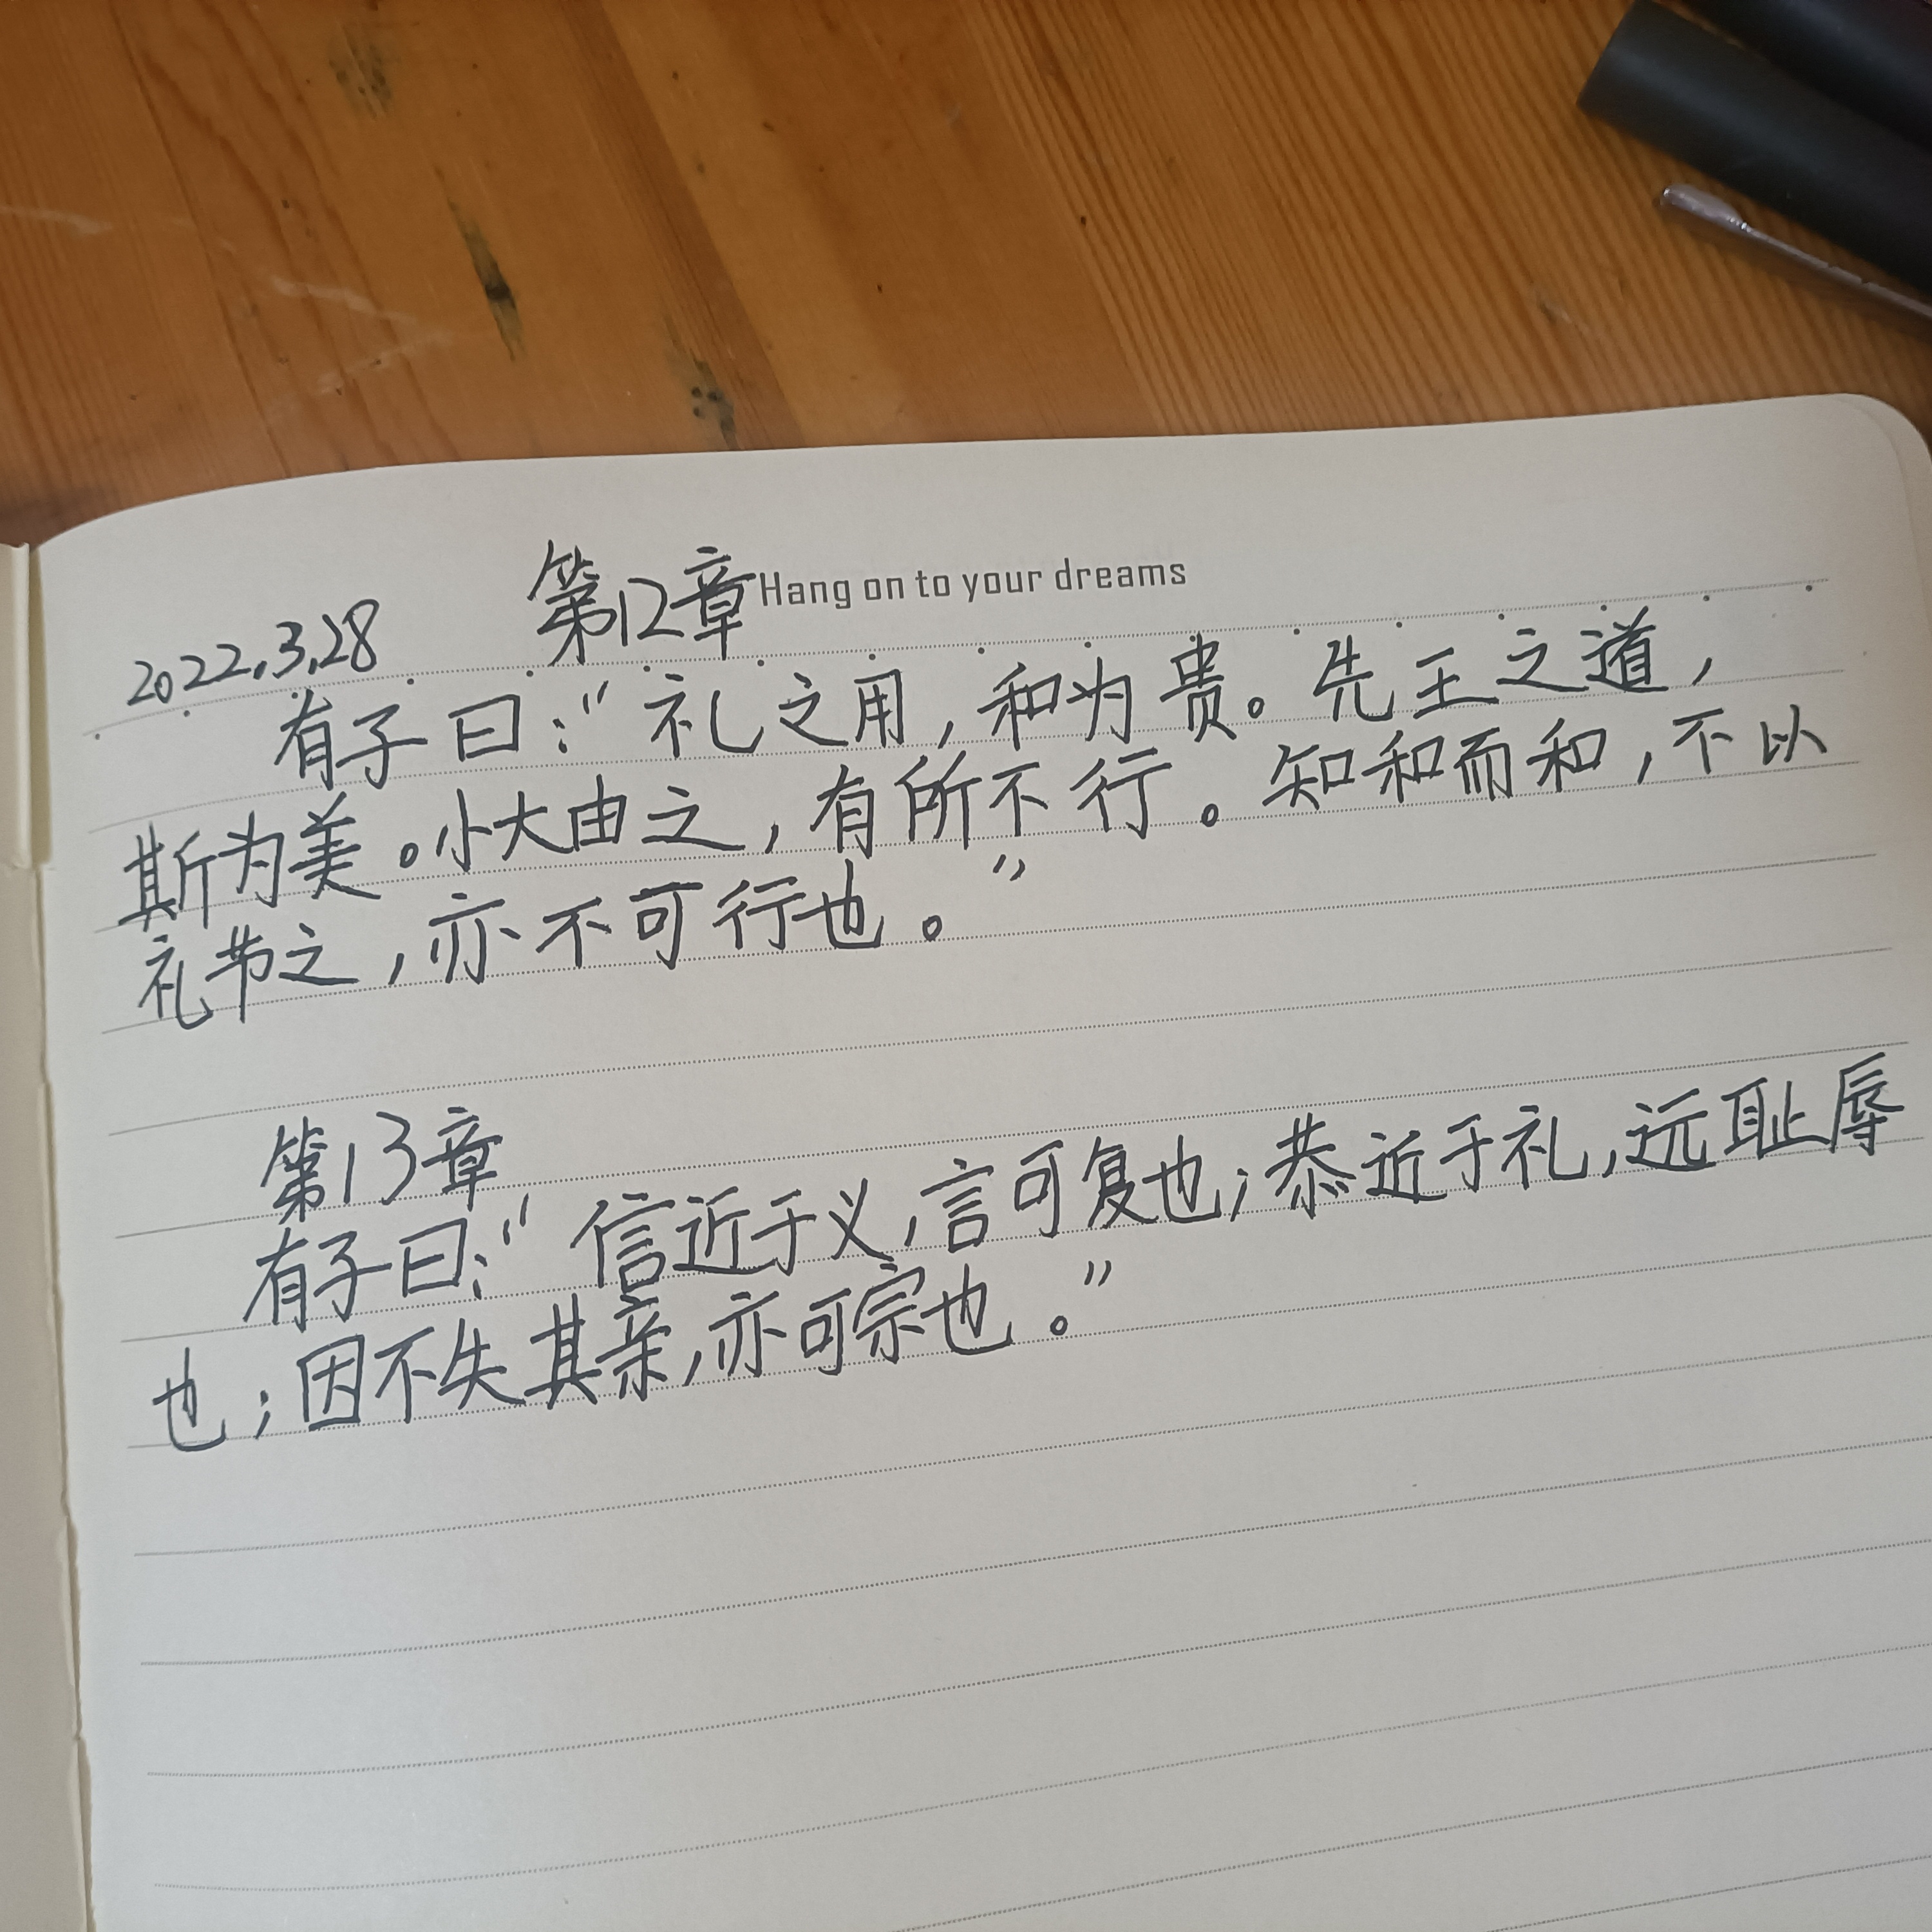 第12章 Hang on to your dreams
2022.3.28
有子曰:“礼之用,和为贵。先王之道,
斯为美。小大由之,有所不行。知和而和,不以
礼节之,亦不可行也。”
第13章
有子曰:“信近于义,言可复也;恭近于礼,远耻辱
也;因不失其亲,亦可宗也。”